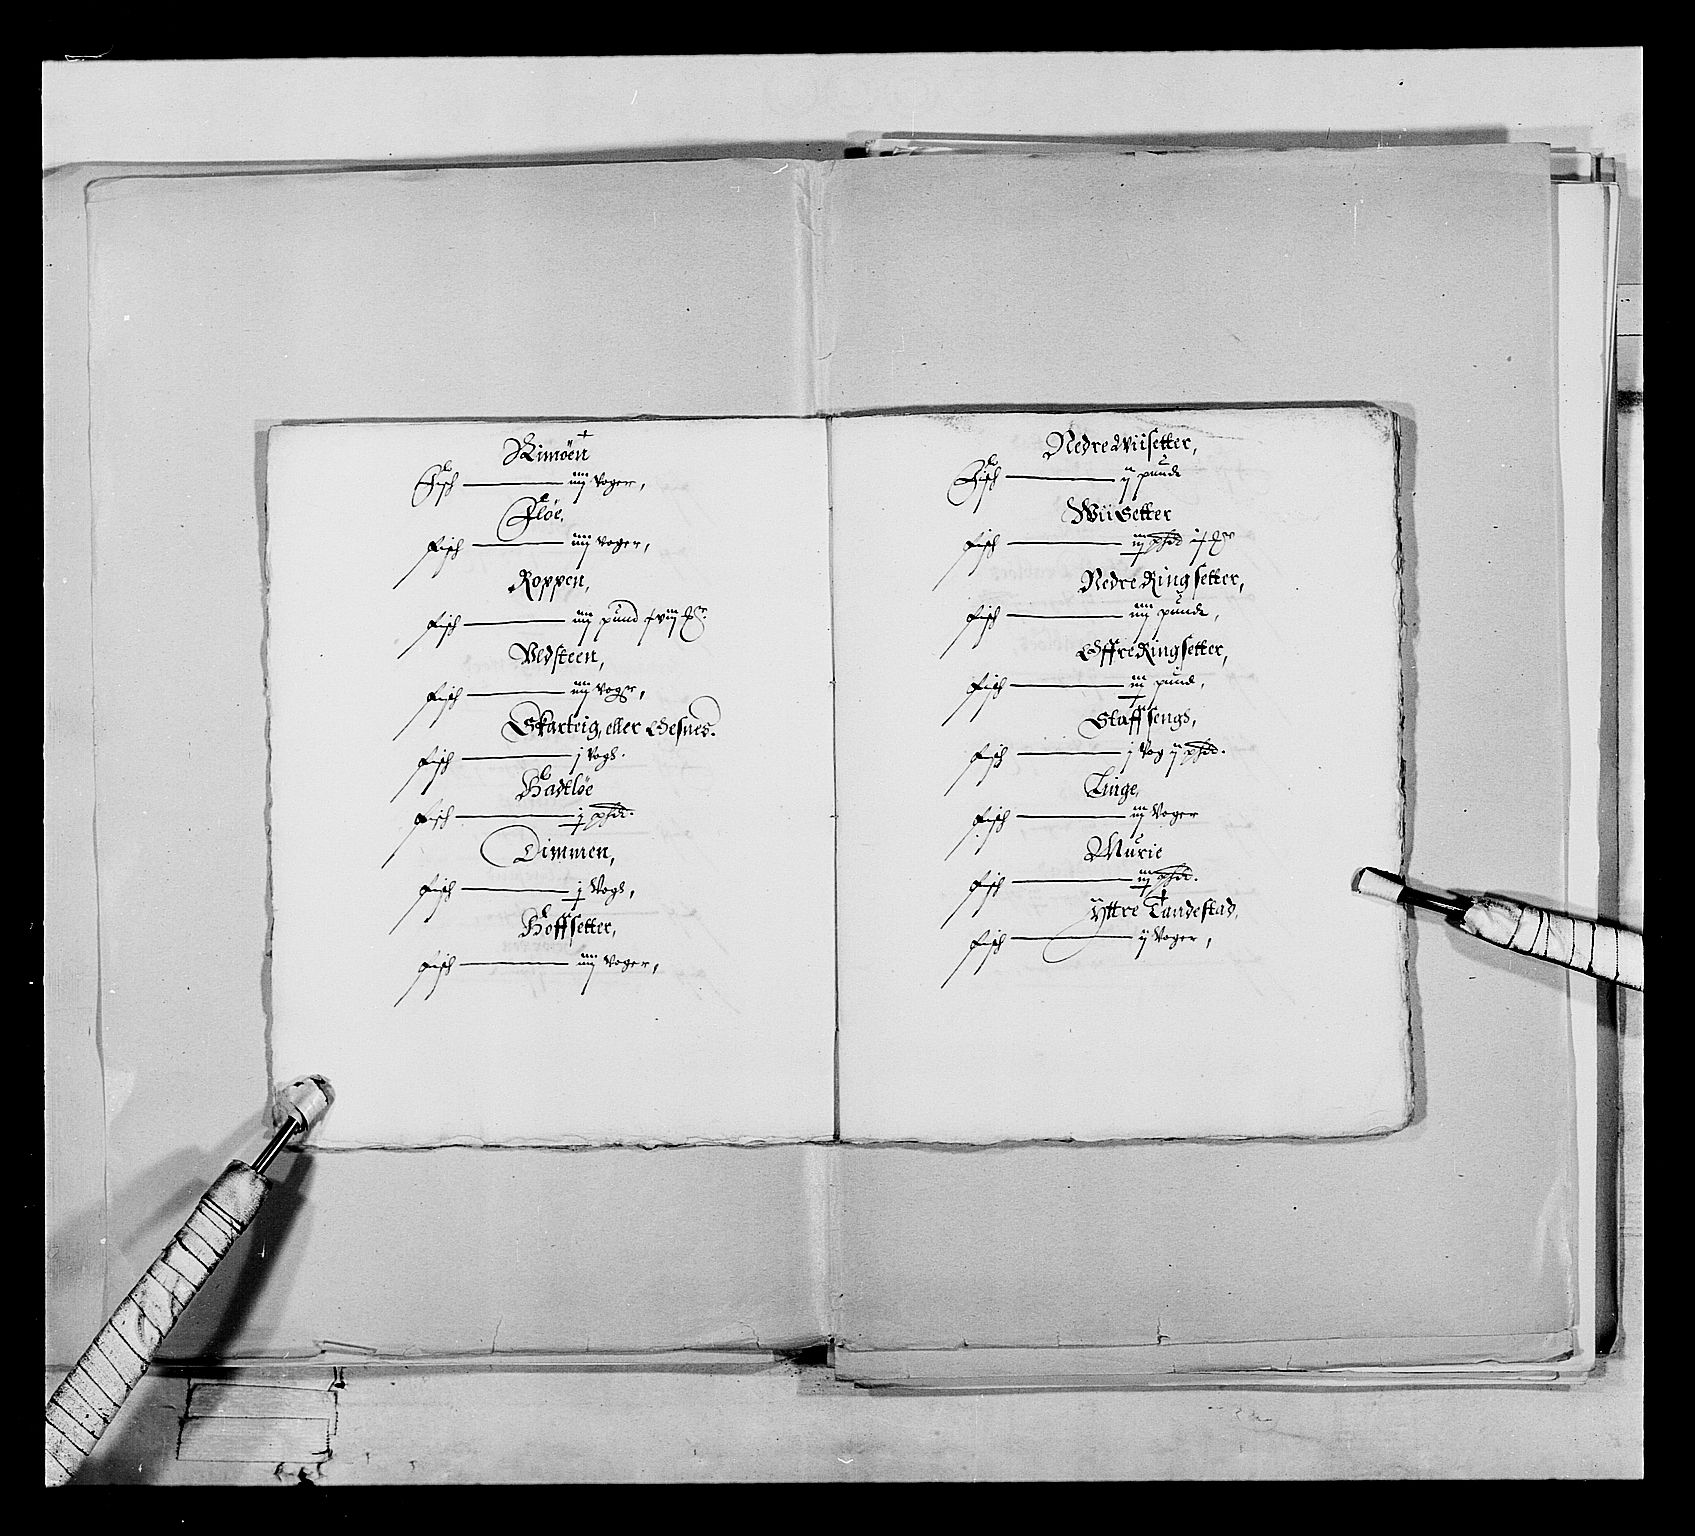 Rimöen
Fisch ——— iiij voger,
Flöe,
Fisch ——— iiij voger,
Roppen,
Fisch ——— iiij pund
Vedsteen,
Fisch ——— iiij voger,
Skarteig, eller Gesnes.
Fisch ——— j vogh.
Hadtlöe
Fisch ———
Dimmen,
Fisch ——— j Vogh,
Hoffsetter,
Fisch ——— iiij voger,
Nedre Wiisetter,
Fisch ——— ij punde
WiiSetter
Fisch ——— iij
Nedre Ringsetter,
Fisch ——— iiij punde,
Öffre Ringsetter,
Fisch ——— iij pund,
Staffsengh,
Fisch ——— j Vog ij
Tinge,
Fisch ——— iij Voger
Murie
Fisch ——— iiij
Yttre Tandestad,
Fisch ——— ij Voger,